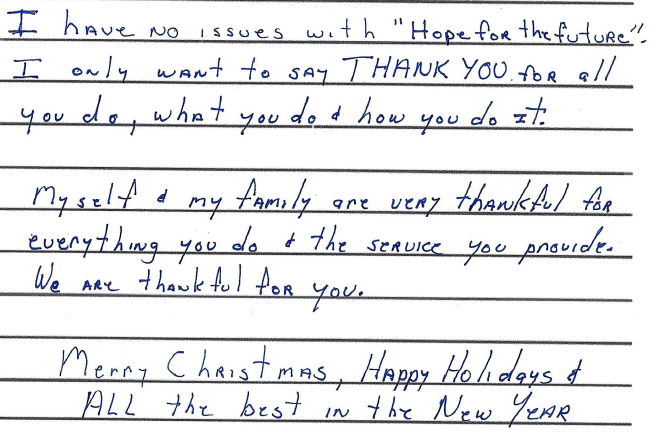 I have no issues with "Hope for the future".
I only want to say THANK YOU for all
you do, what you do & how you do it.
Myself & my family are very thankful for
everything you do & the service you provide.
We are thankful for you.
Merry Christmas, Happy Holidays &
ALL the best in the New Year